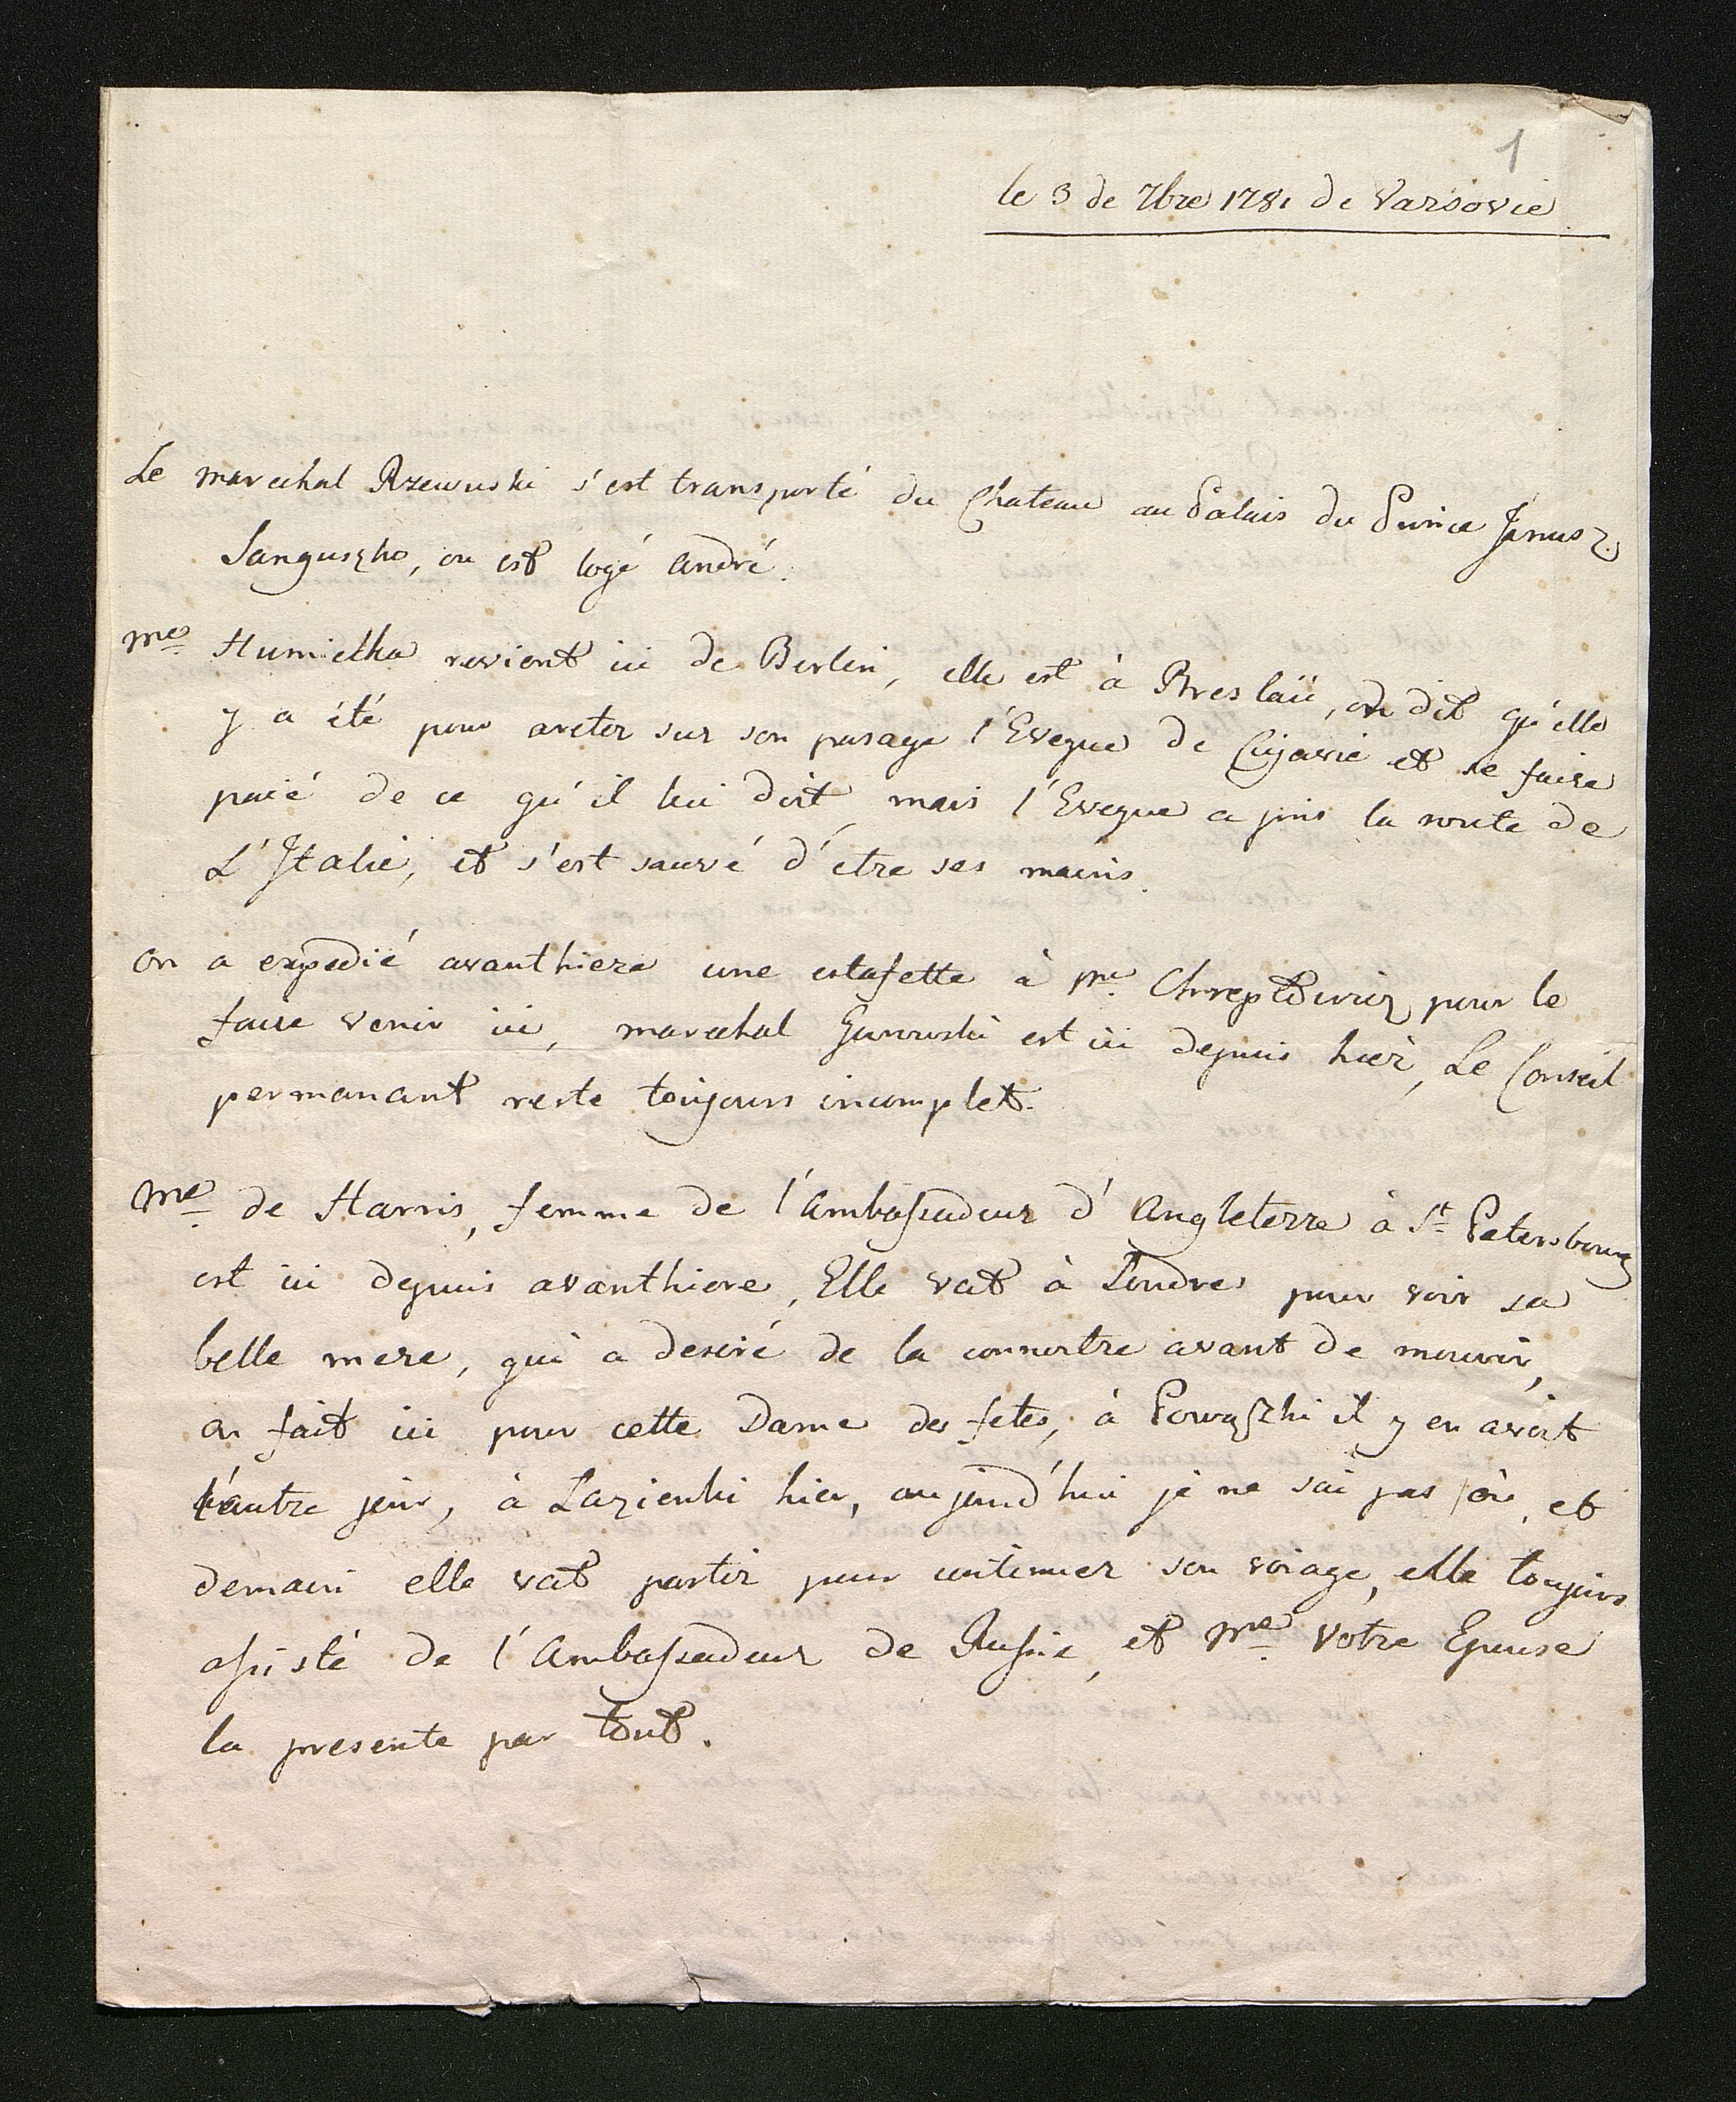 1
le 3 de 7bre 1781 de Varsovie
Le marechal Rzewuski s'est transporté du Chateau au Palais du Prince Janusz
Sanguszko, ou est logé André.
Me Humiecka revient ici de Berlin, elle est à Breslau, on dit qu'elle
y a été pour areter sur son pasage l'Eveque de Cujavie et se faire
paié de ce qu'il lui doit, mais l'Eveque a pris la route de
L'Italie, et s'est sauvé d'etre ses mains.
on a expedié avanthiere une estafette à Mr Chreptowicz pour le
faire venir ici, marechal Gurowski est ici depuis hier, Le Conseil
permanant reste toujours incomplet.
Me de Harris, femme de l'Ambassadeur d'Angleterre à St Petersbourg
est ici depuis avanthiere, Elle vat à Londres pour voir sa
belle mere, qui a desiré de la connoitre avant de mourir,
on fait ici pour cette Dame des fetes, à Powązki il y en avoit
l'autre jour, à Lazienki hier, aujourd'hui je ne sai pas où, et
demain elle vat partir pour continuer son voiage, elle toujours
assisté de l'Ambassadeur de Russie, et Me Votre Epouse
la presente par tout.